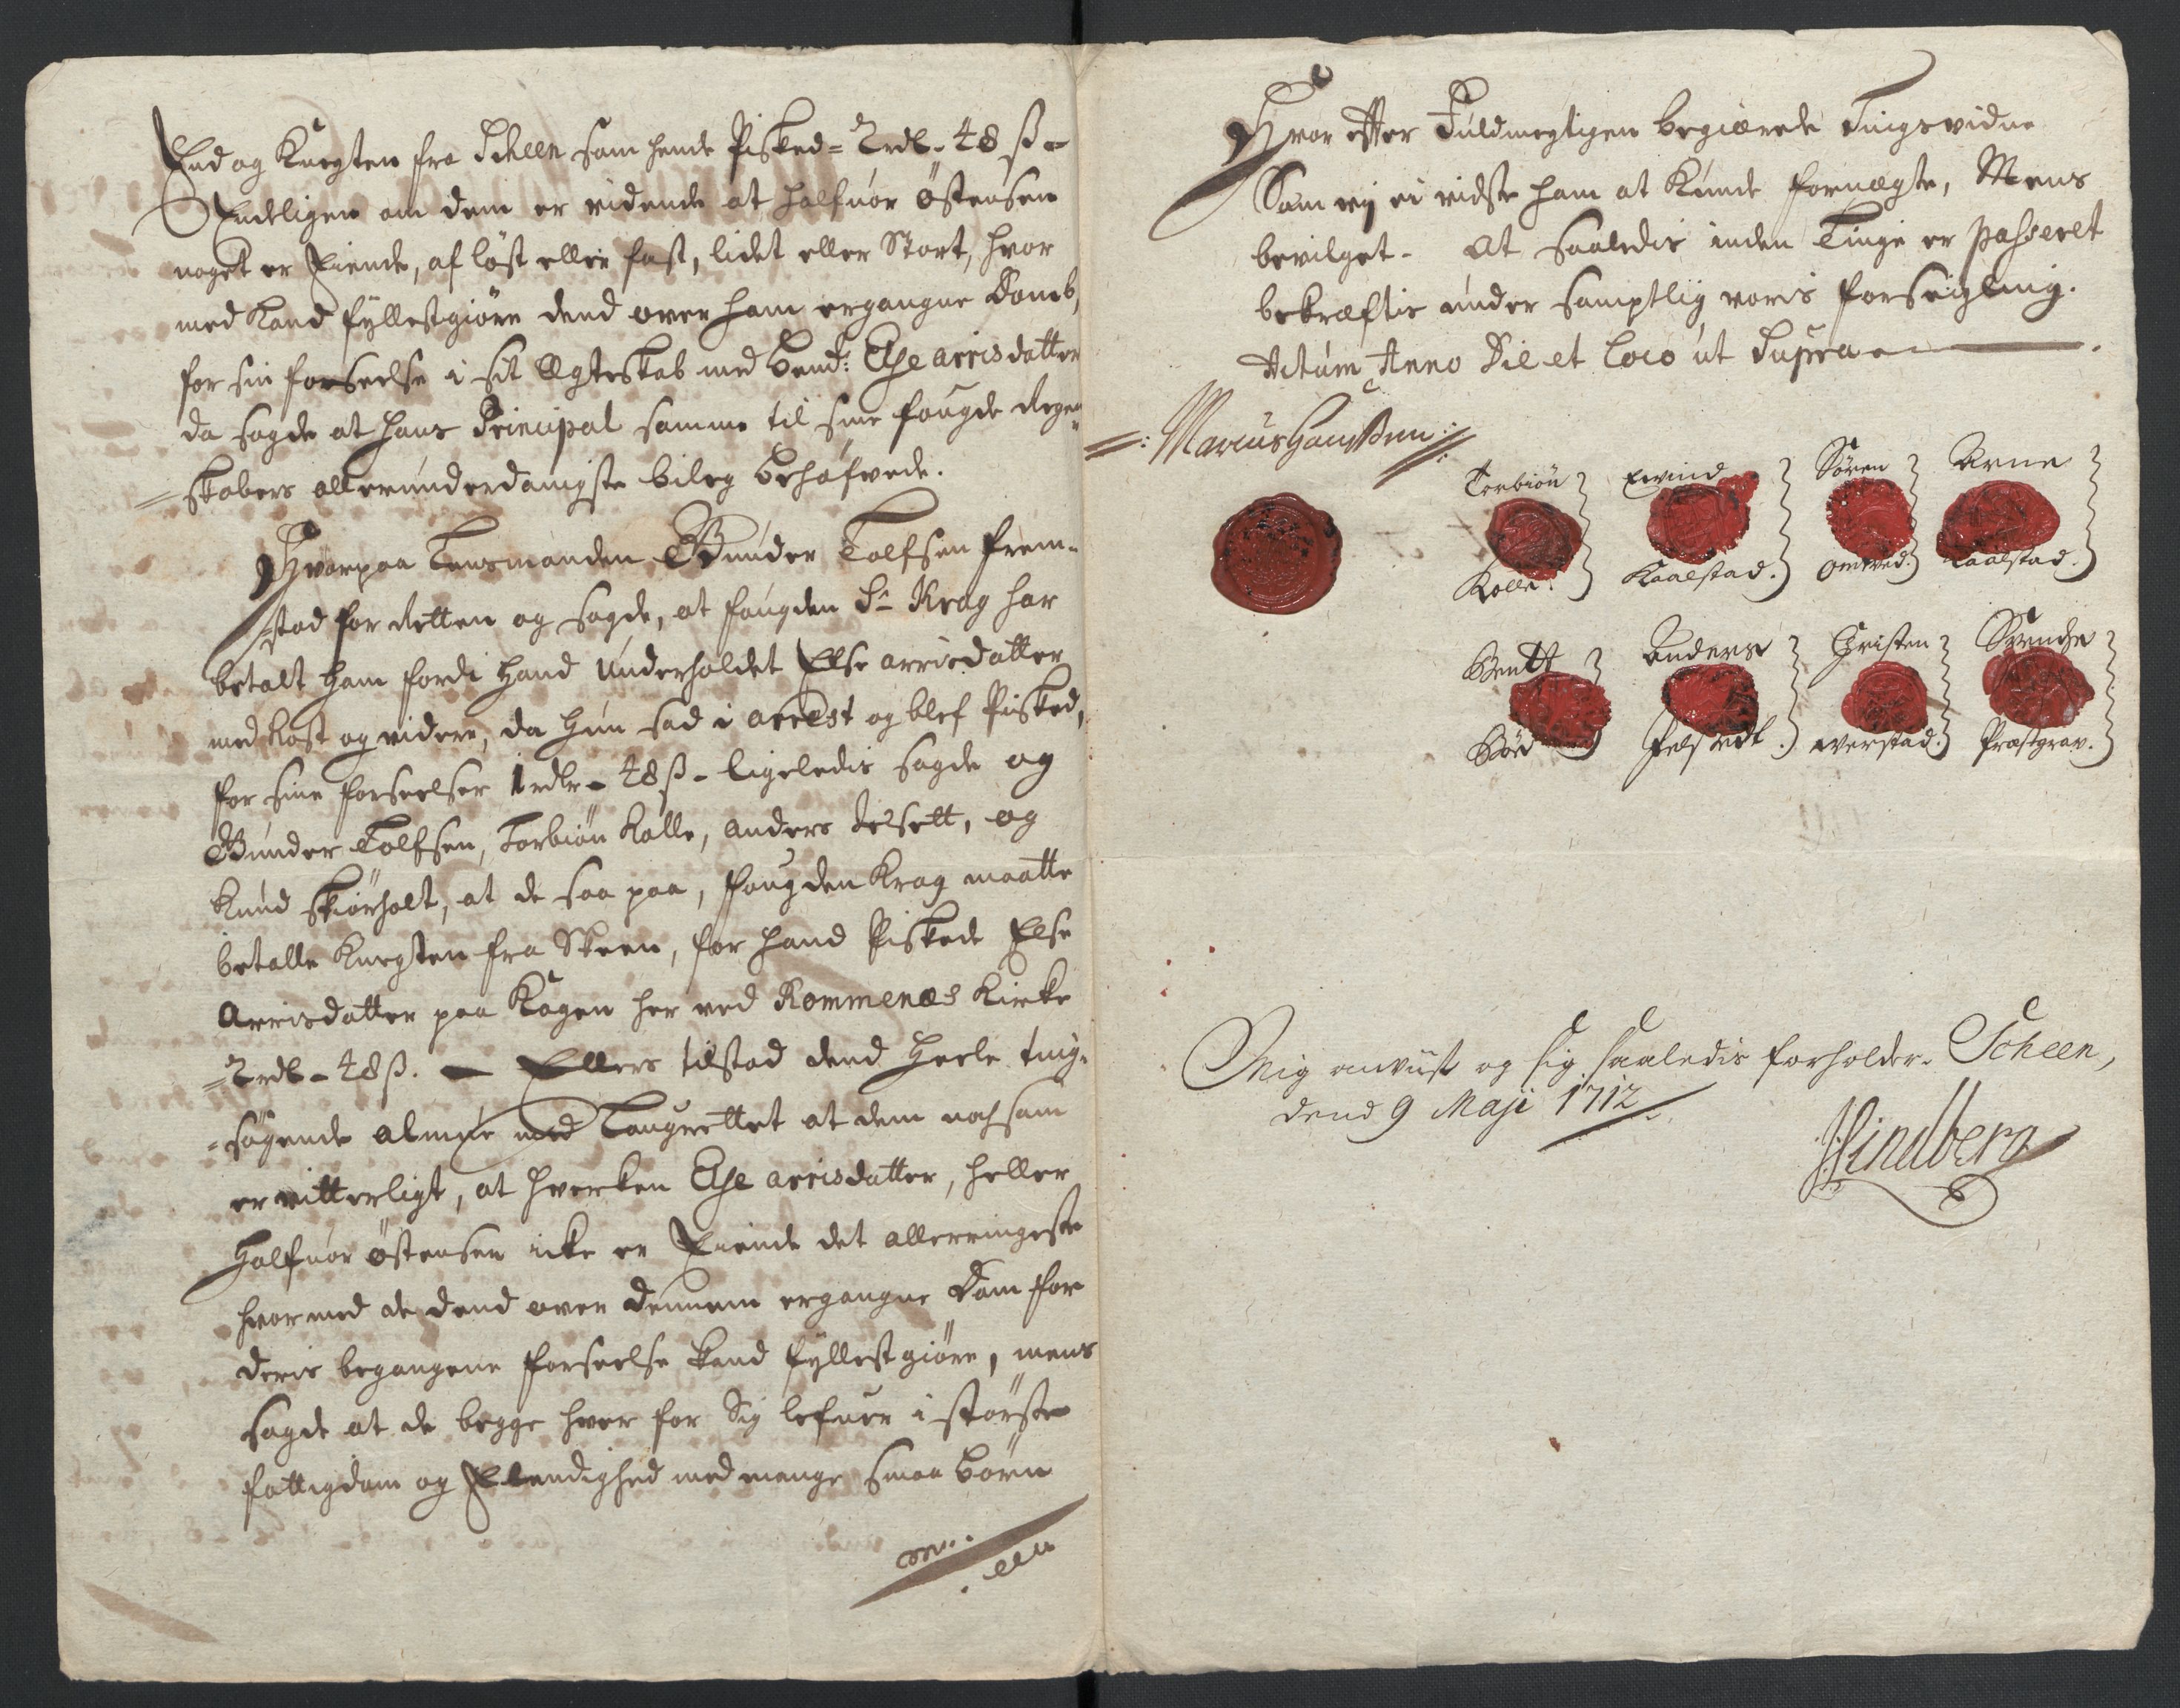 End og Knegten fra Scheen som hende Pisked = 2 rdl - 48 ß -
Endeligen om dem er vidende at Halfuor Østensen
noget er Eiende, af løst eller fast, lidet eller Stort, hvor
med kand fyllestgiøre dend over ham ergangne Domb,
for sin forseelse i sit Ægteskab med bemt: Else arrisdatter
da sagde at hans Principal samme til sine fougde Regen
skabers allerunderdanigste bilag behøfvede.
Hvorpaa Lensmanden Gunder Tolfsen frem-
stod for Retten og sagde, at fougden Sr Krag har
betalt ham fordi hand underholdet Else arrisdatter
med kost og videre, da hun sad i arrest og blef Pisked,
for sine forseelser 1 rdlr - 48 ß - ligeledis sagde og
Gunder Tolfsen, Torbiøn Kolle, Anders Felsett, og
Knud Skiørholt, at de saa paa, fougden Krag maatte
betalle Knegten fra Skeen, for hand Piskede Else
Arrisdatter paa Kagen her ved Rommenæs Kirke
2 rdl - 48 ß. - Ellers tilstod dend heele ting-
søgende almue med Laugrettet at dem nochsom
er vitterligt, at hverken Else arrisdatter, heller
Halfuor Østensen icke er Eiende det allerringeste
hvormed de dend over dennem ergangne Dom for
deris begangene forseelse kand fyllestgiøre, mens
sagde at de begge hver for Sig lefuer i største
fattigdom og Elendighed med mange smaa børn
Hvor efter Fuldmegtigen begiærede Tingsvidne
Som vij ei vidste ham at kunde fornægte, Mens
bevilget. At saaledis inden Tinge er passeret
bekræftis under samptlig voris forseigling.
Actum Anno Die et Loco ut Supra
Marcus Hanssen
Torbiøn Eivind Søren Arne
Kolle. Kaalstad. Omtved. Kaalstad.
Bentt Anders Christen Svenche
Felsedt. overstad. Præstgrav.
Mig anviist og sig saaledis forholder. Scheen,
dend 9 Maji 1712
Hindberg